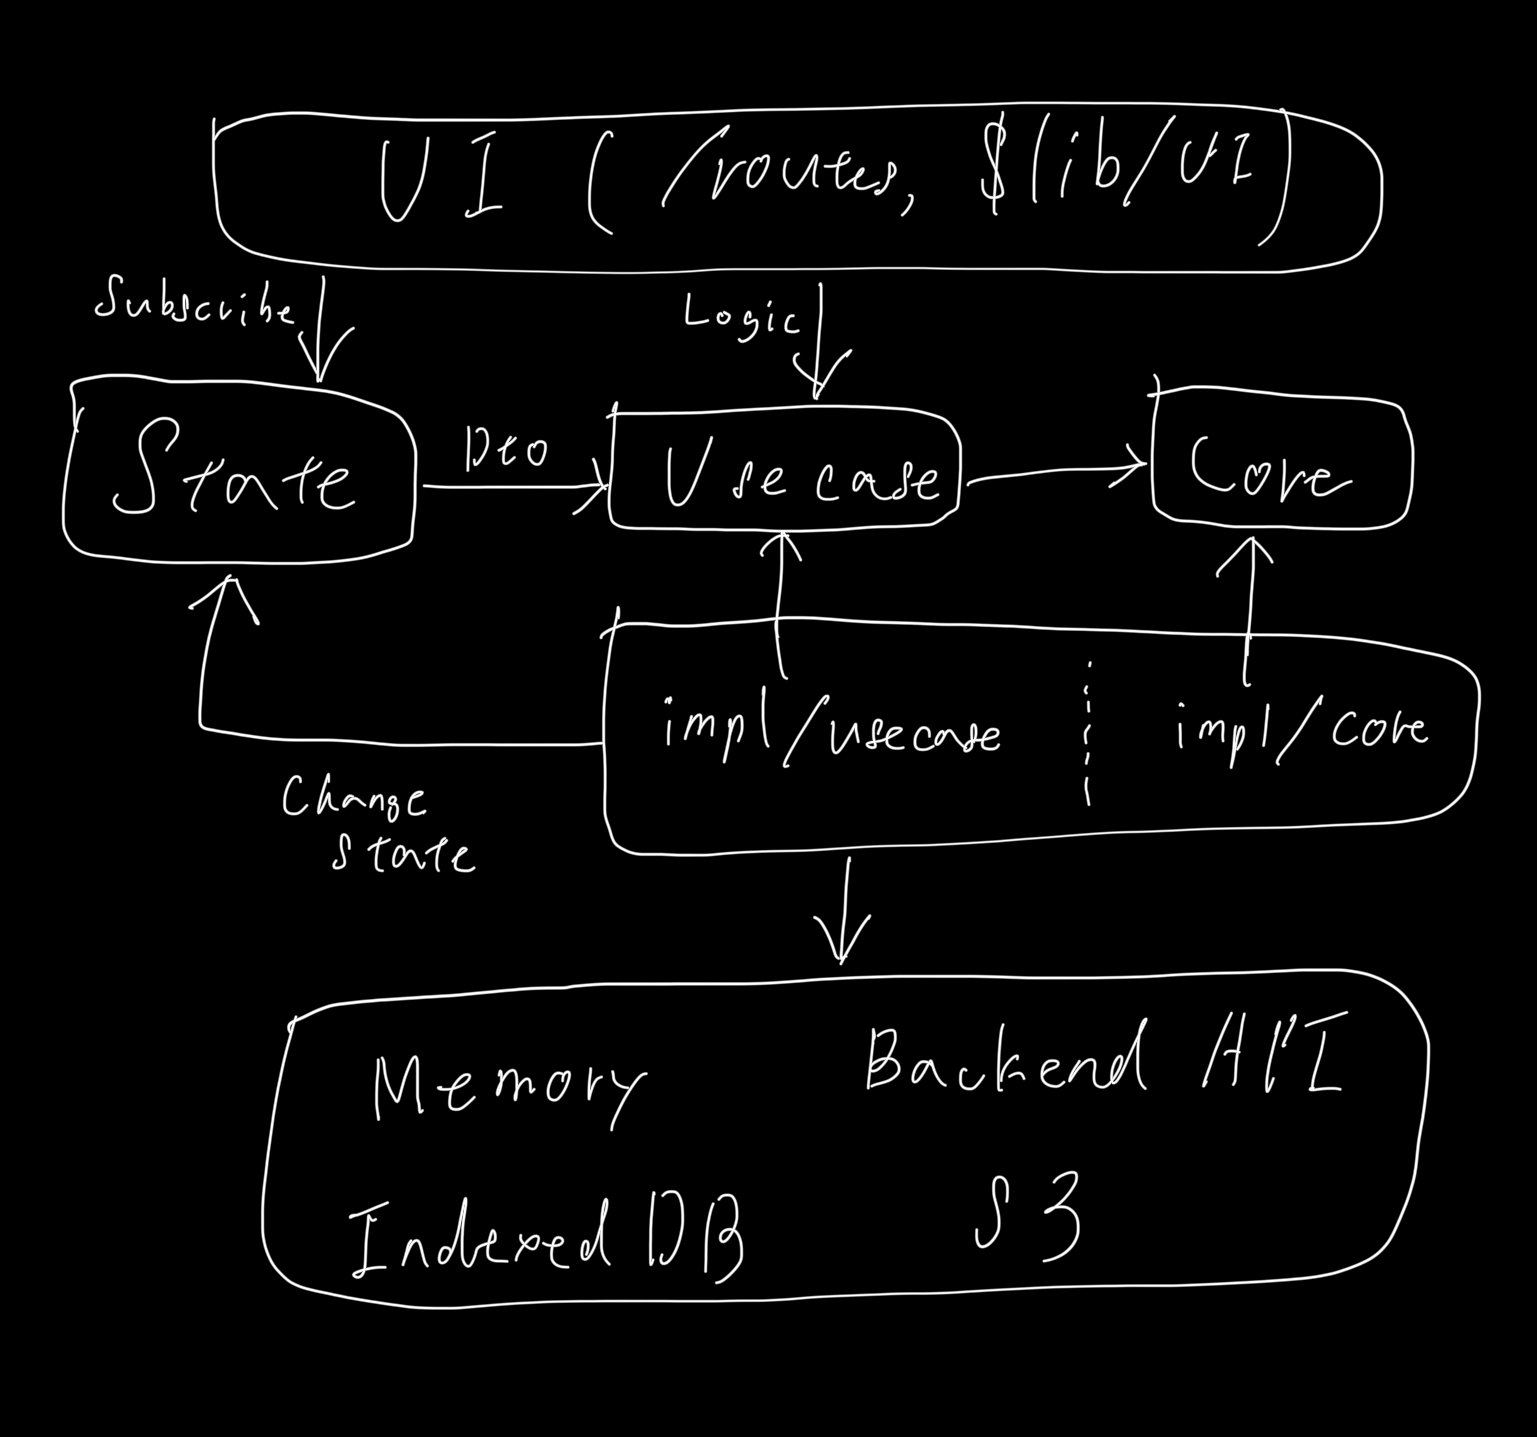 UI (/routes, $lib/UI)
Subscribe
Logic
State
Dto
Usecase
Core
impl/usecase
impl/core
Change
state
Memory
Backend API
Indexed DB
S3